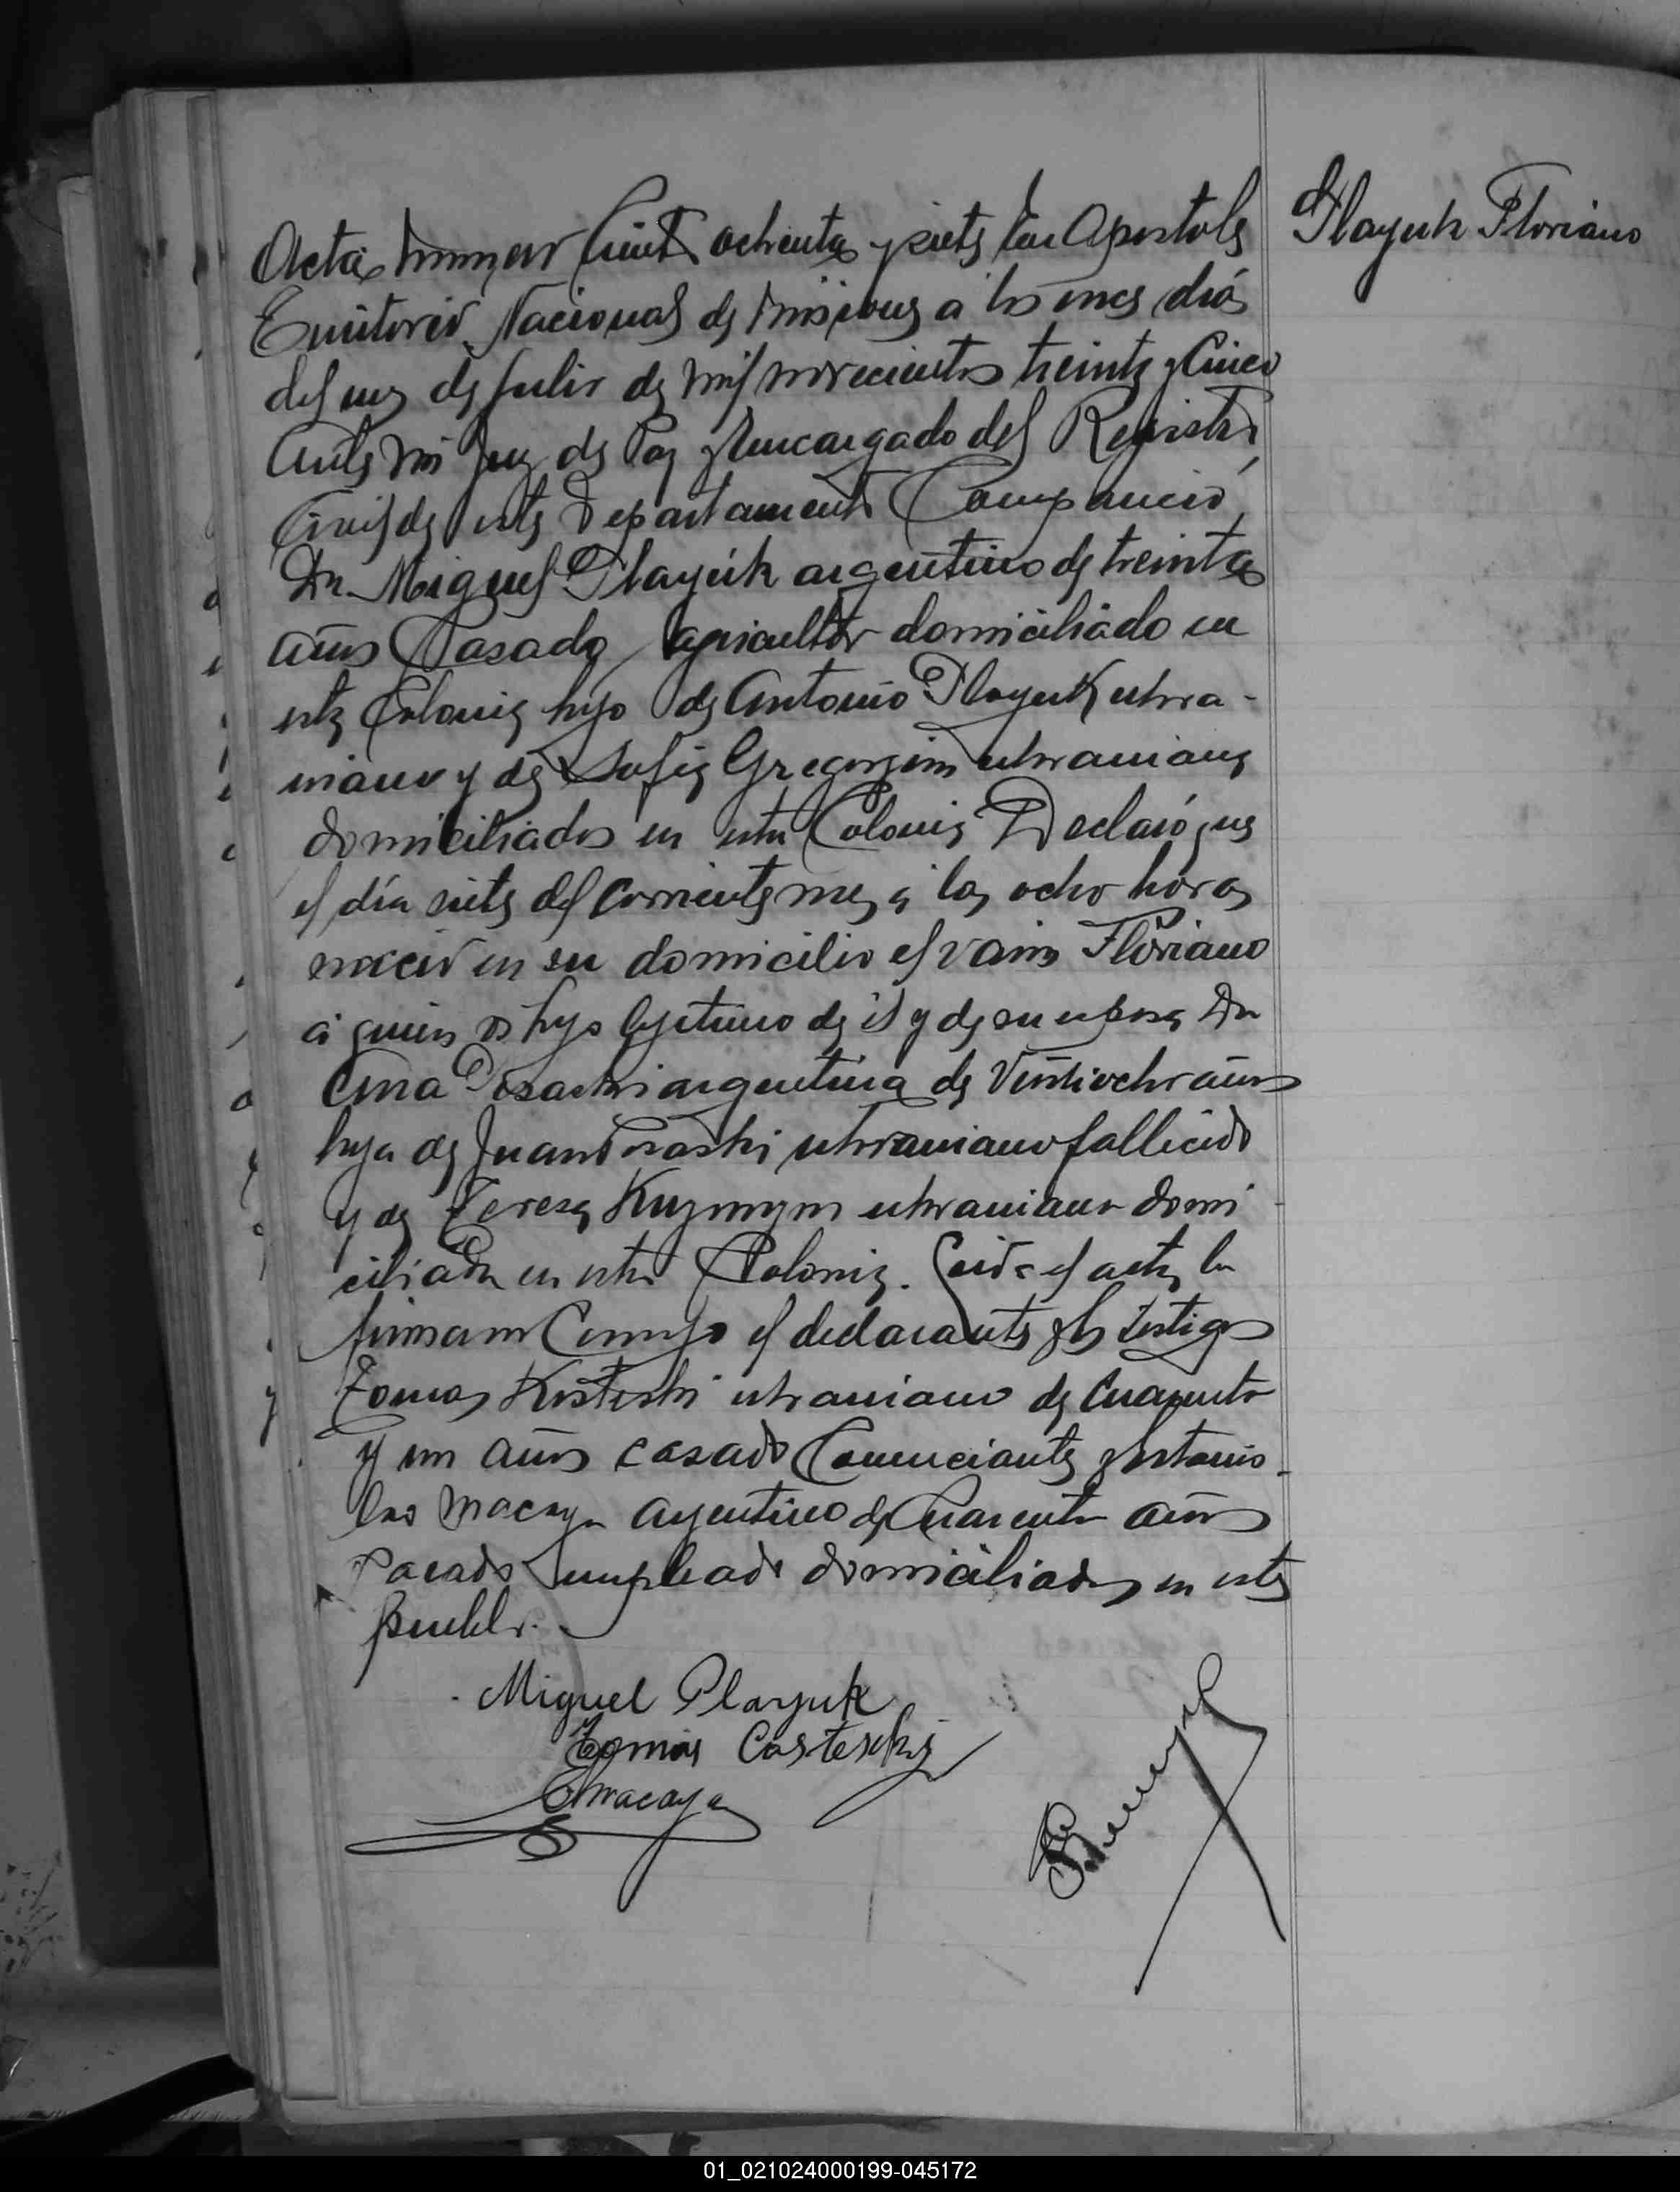 Plazuk Floriano
Acta numero Ciento ochenta y siete En Apostoles
Territorio Nacional de Misiones a los once dias
del mes de Julio de mil novecientos treinta y Cinco
Ante mi Juez de Paz y Encargado del Registro
Civil de este Departamento Compareció
Dn. Miguel Plazuk argentino de treinta
años Casado agricultor domiciliado en
esta Colonia hijo de Antonio Plazuk ukra-
niano y de Sofia ukraniana
domiciliados en esta Colonia Declaró que
el día siete del corriente mes a las ocho horas
nació en su domicilio el varon Floriano
a quien es hijo legitimo de él y de su esposa Da
argentina de Veintiocho años
hija de Juan ukraniano fallecido
y de Teresa ukraniana domi
ciliada en esta Colonia. Leida el acta, la
firmaron Conmigo el declarante y los testigos
Tomas Kosteski ukraniano de Cuarenta
y un años casado Comerciante y Estanis-
lao Macaya argentino de Cuarenta años
casado empleado domiciliados en este
Pueblo.
Miguel Plazuk
Tomas Costeschi
EMacaya
01_021024000199-045172